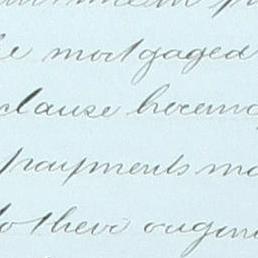 e mortgaged
clause herein
payments ma
to their origin